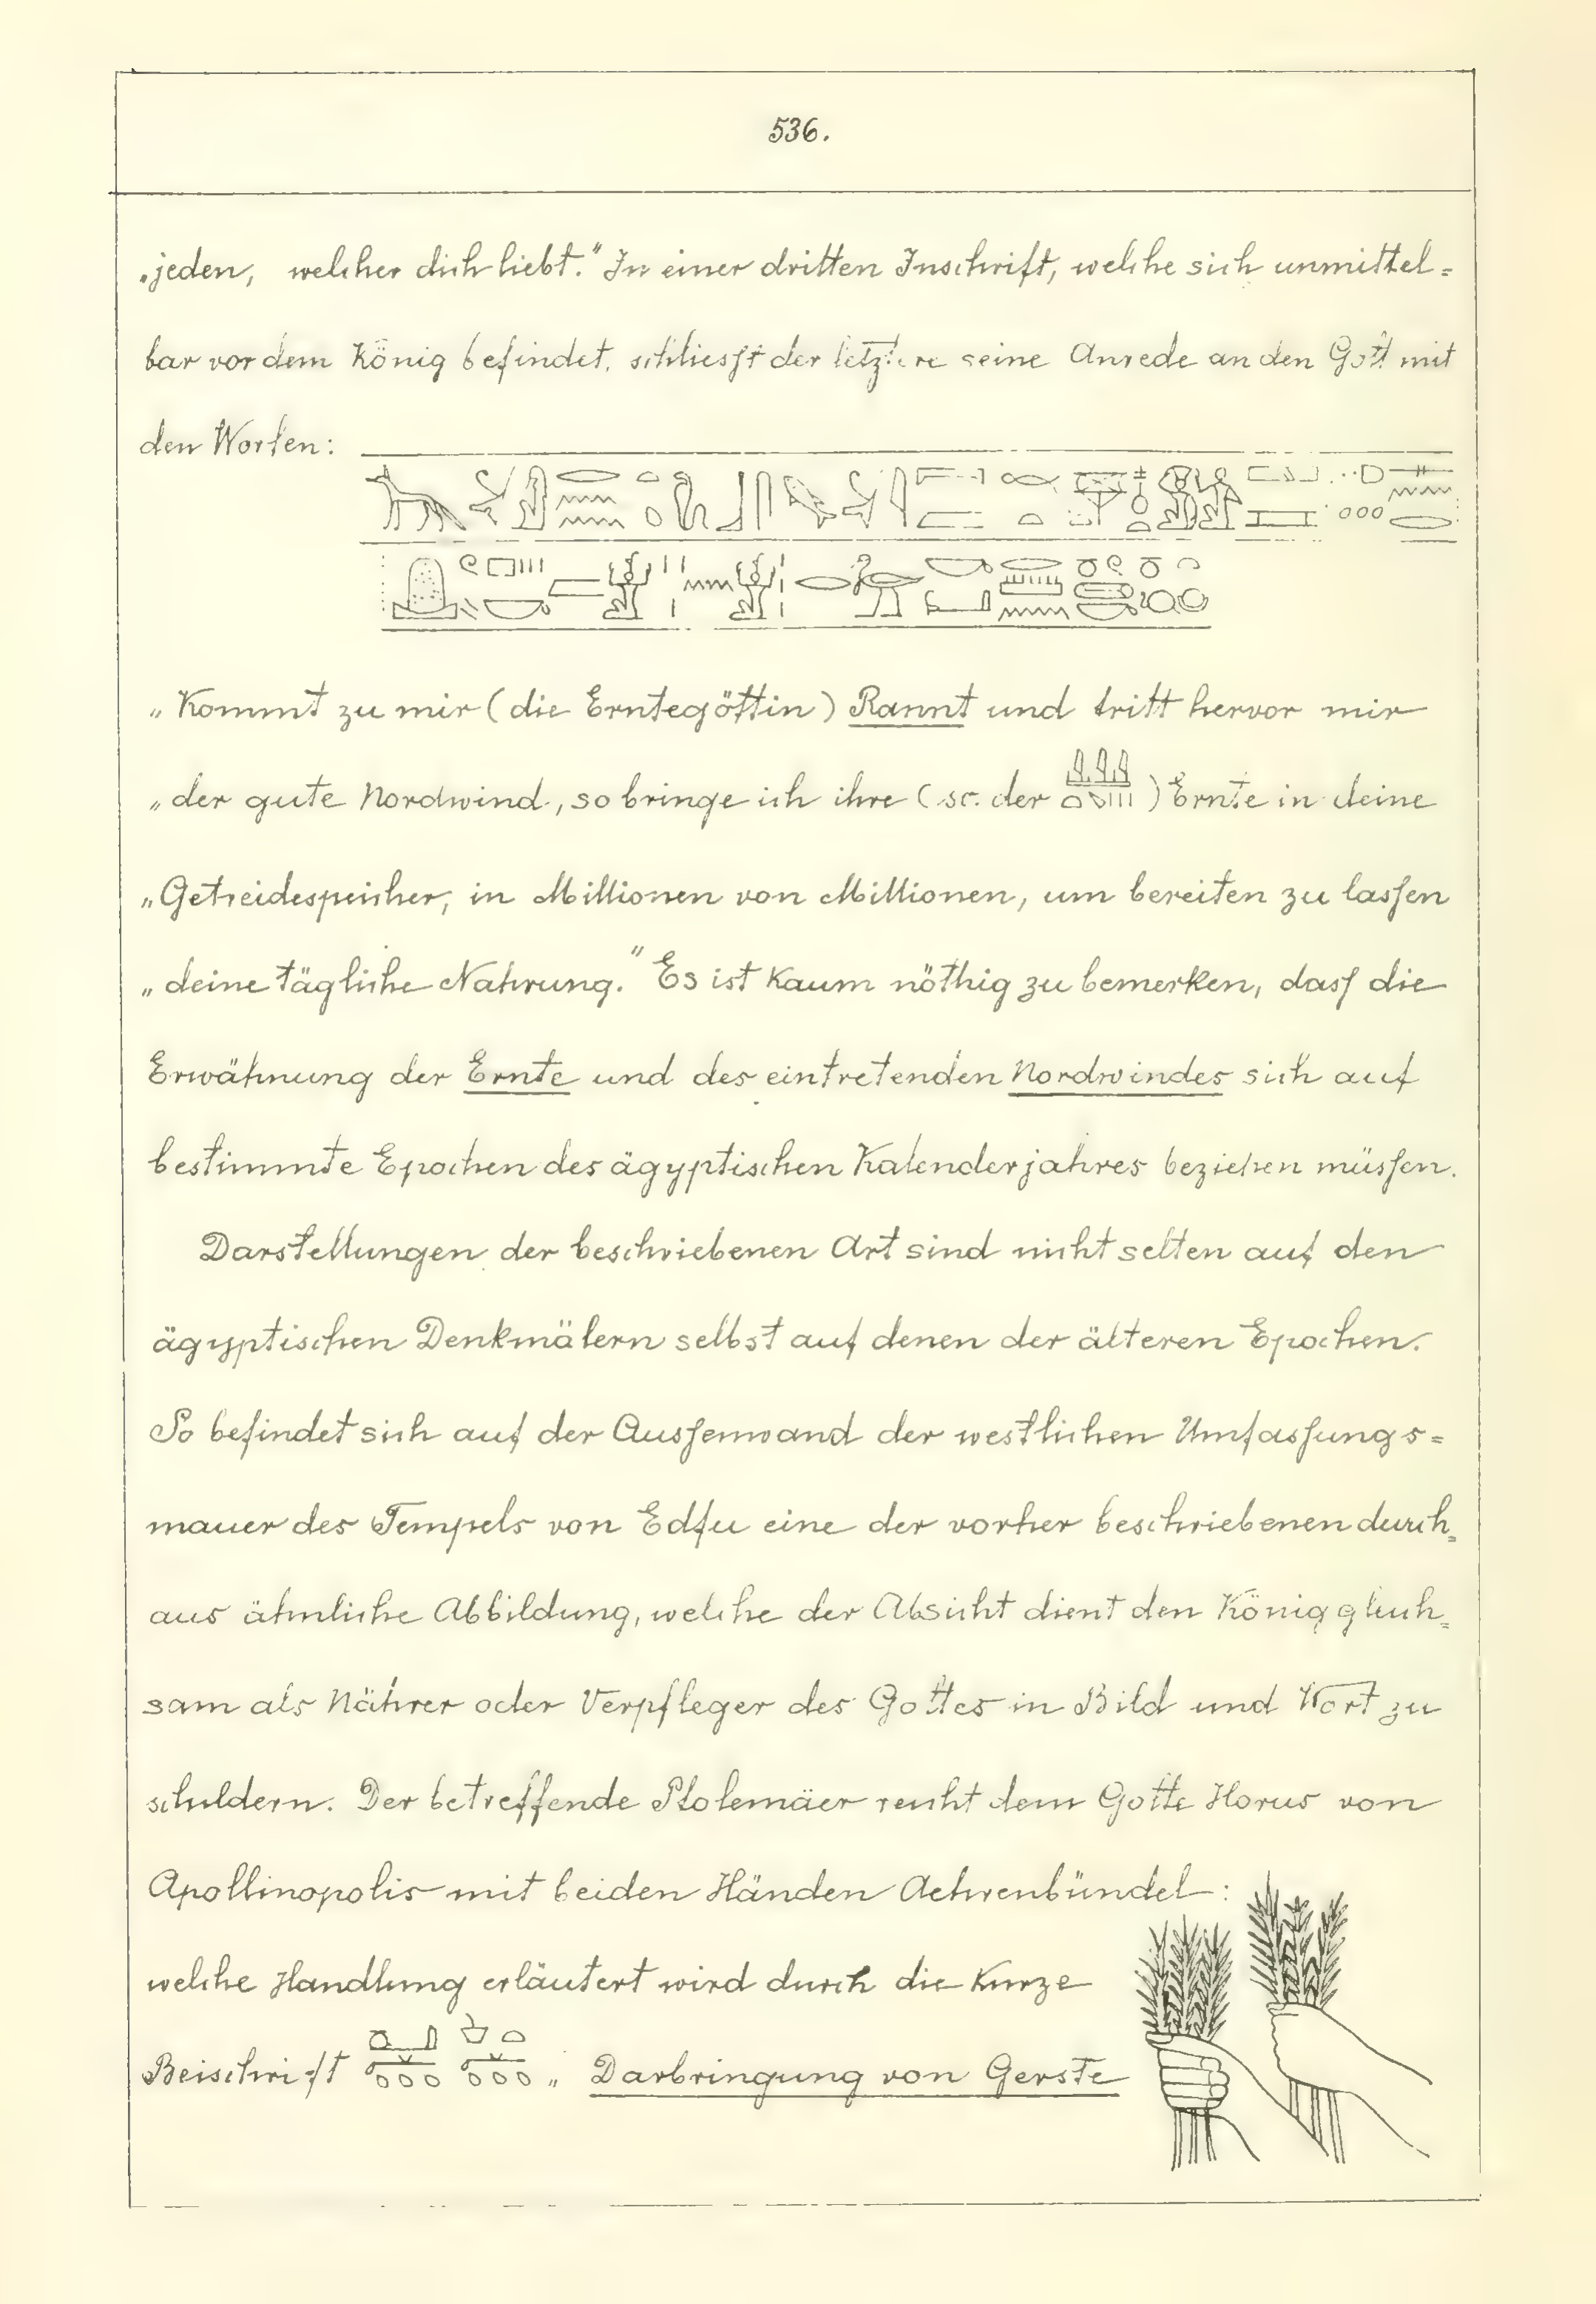 536.
„jeden, welcher dich liebt.“ In einer dritten Inschrift, welche sich unmittel=
bar vor dem König befindet, schliesst der letztere seine Anrede an den Gott mit
den Worten:
„Kommt zu mir (die Erntegöttin) Rannt und tritt hervor mir
„der gute Nordwind, so bringe ich ihre (sc. der ) Ernte in deine
„Getreidespeicher, in Millionen von Millionen, um bereiten zu lassen
„deine tägliche Nahrung.“ Es ist kaum nöthig zu bemerken, dass die
Erwähnung der Ernte und des eintretenden Nordwindes sich auf
bestimmte Epochen des ägyptischen Kalenderjahres beziehen müssen.
Darstellungen der beschriebenen Art sind nicht selten auf den
ägyptischen Denkmälern selbst auf denen der älteren Epochen.
So befindet sich auf der Aussenwand der westlichen Umfassungs=
mauer des Tempels von Edfu eine der vorher beschriebenen durch=
aus ähnliche Abbildung, welche der Absicht dient den König gleich=
sam als Nährer oder Verpfleger des Gottes in Bild und Wort zu
schildern. Der betreffende Ptolemäer reicht dem Gotte Horus von
Apollinopolis mit beiden Händen Aehrenbündel:
welche Handlung erläutert wird durch die kurze
Beischrift „Darbringung von Gerste